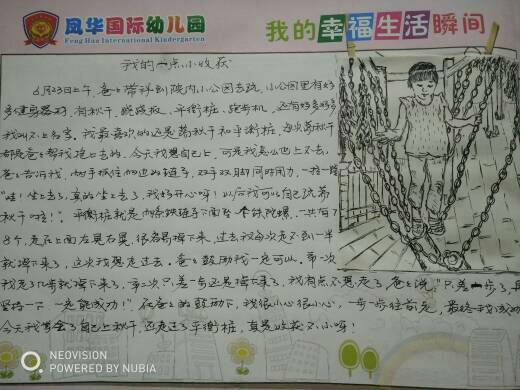 风华国际幼儿园
Feng Hua International Kindergarten
我的幸福生活瞬间
我的一点小收获
6月23日上午,爸爸带我到院内小公园去玩,小公园里有好
多健身器材,有秋千、跷跷板、平衡桩、跑步机,还有好多好多
我叫不上名字。我最喜欢的还是荡秋千和平衡桩,每次荡秋千
都是爸爸帮我抱上去的,今天我想自己上,可是我怎么也上不去,
爸爸告诉我,两手抓住两边的链子,双手双脚同时用力,一抬一蹬
"哇!坐上去了,真的坐上去了,我好开心呀!以后我可以自己玩荡
秋千啦!"。平衡桩就是两条铁链子下面吊个铁陀螺,一共有
8个,走在上面左晃右晃,很容易掉下来,过去我每次走不到一半
就掉下来了,这次我想走过去,爸爸鼓励我一定可以。第一次
我走了几步就掉下来了,第二次只差一步还是掉下来了,我有点不想走了,爸爸说:"只差一步了再
坚持一下,一定能成功!"在爸爸的鼓励下,我很小心很小心,一步一步往前走,最终于我成功
今天我学会了自己上秋千,还走过了平衡桩,真是收获不小呀!
NEOVISION
POWERED BY NUBIA